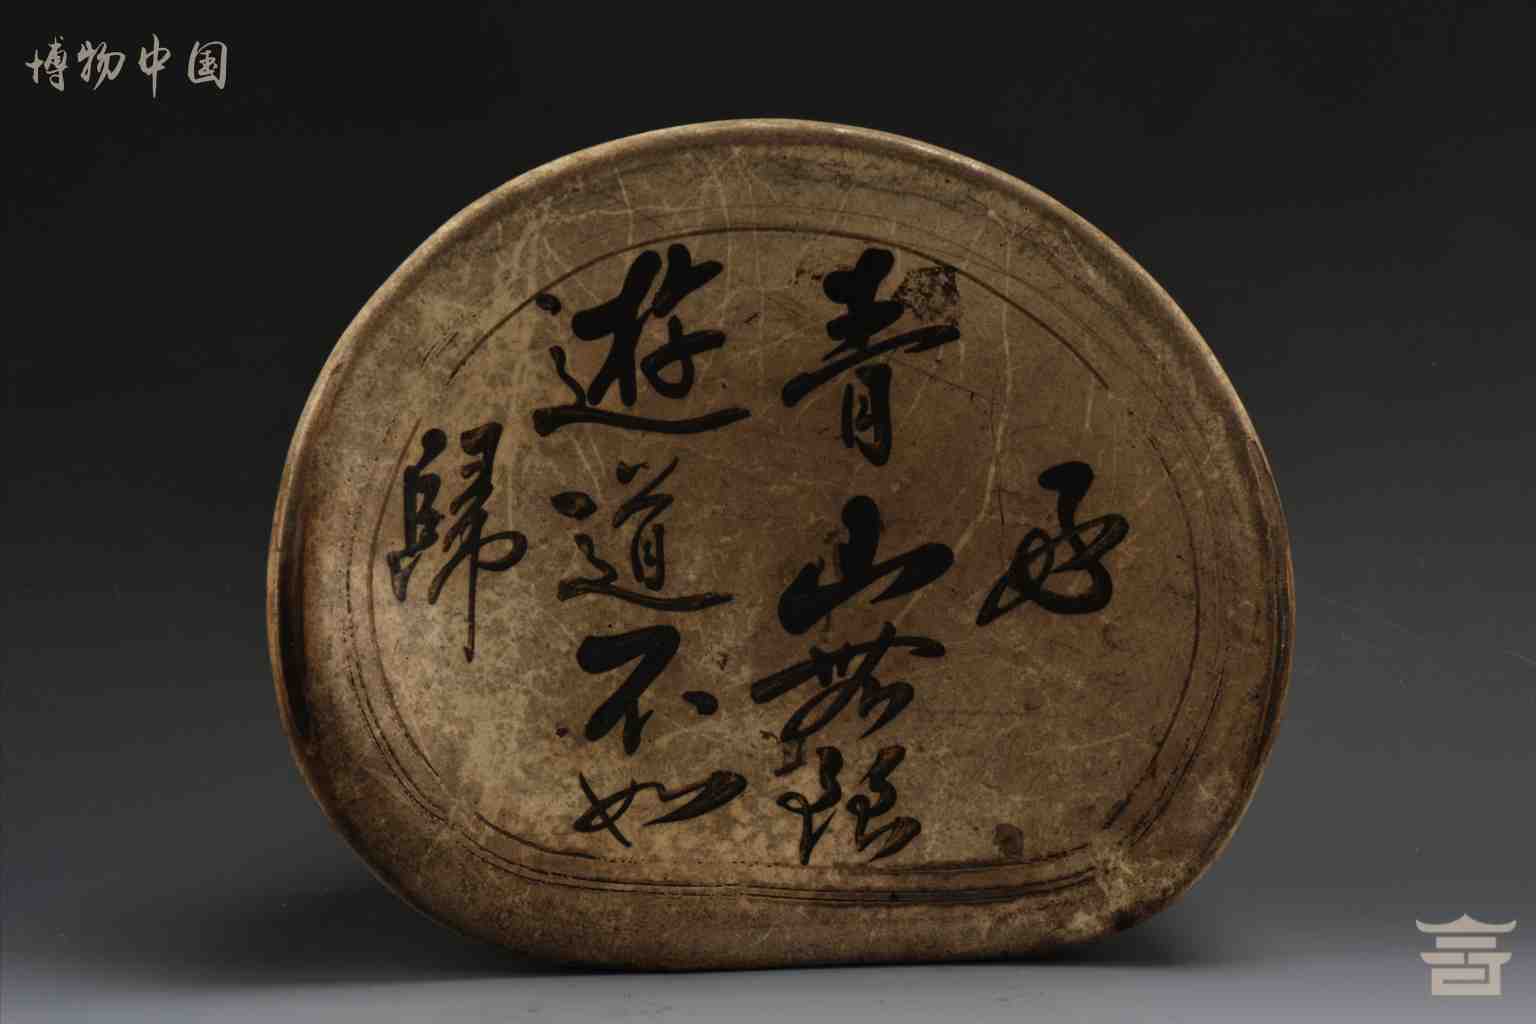 博物中国
好
青山無限
遊道不如
歸